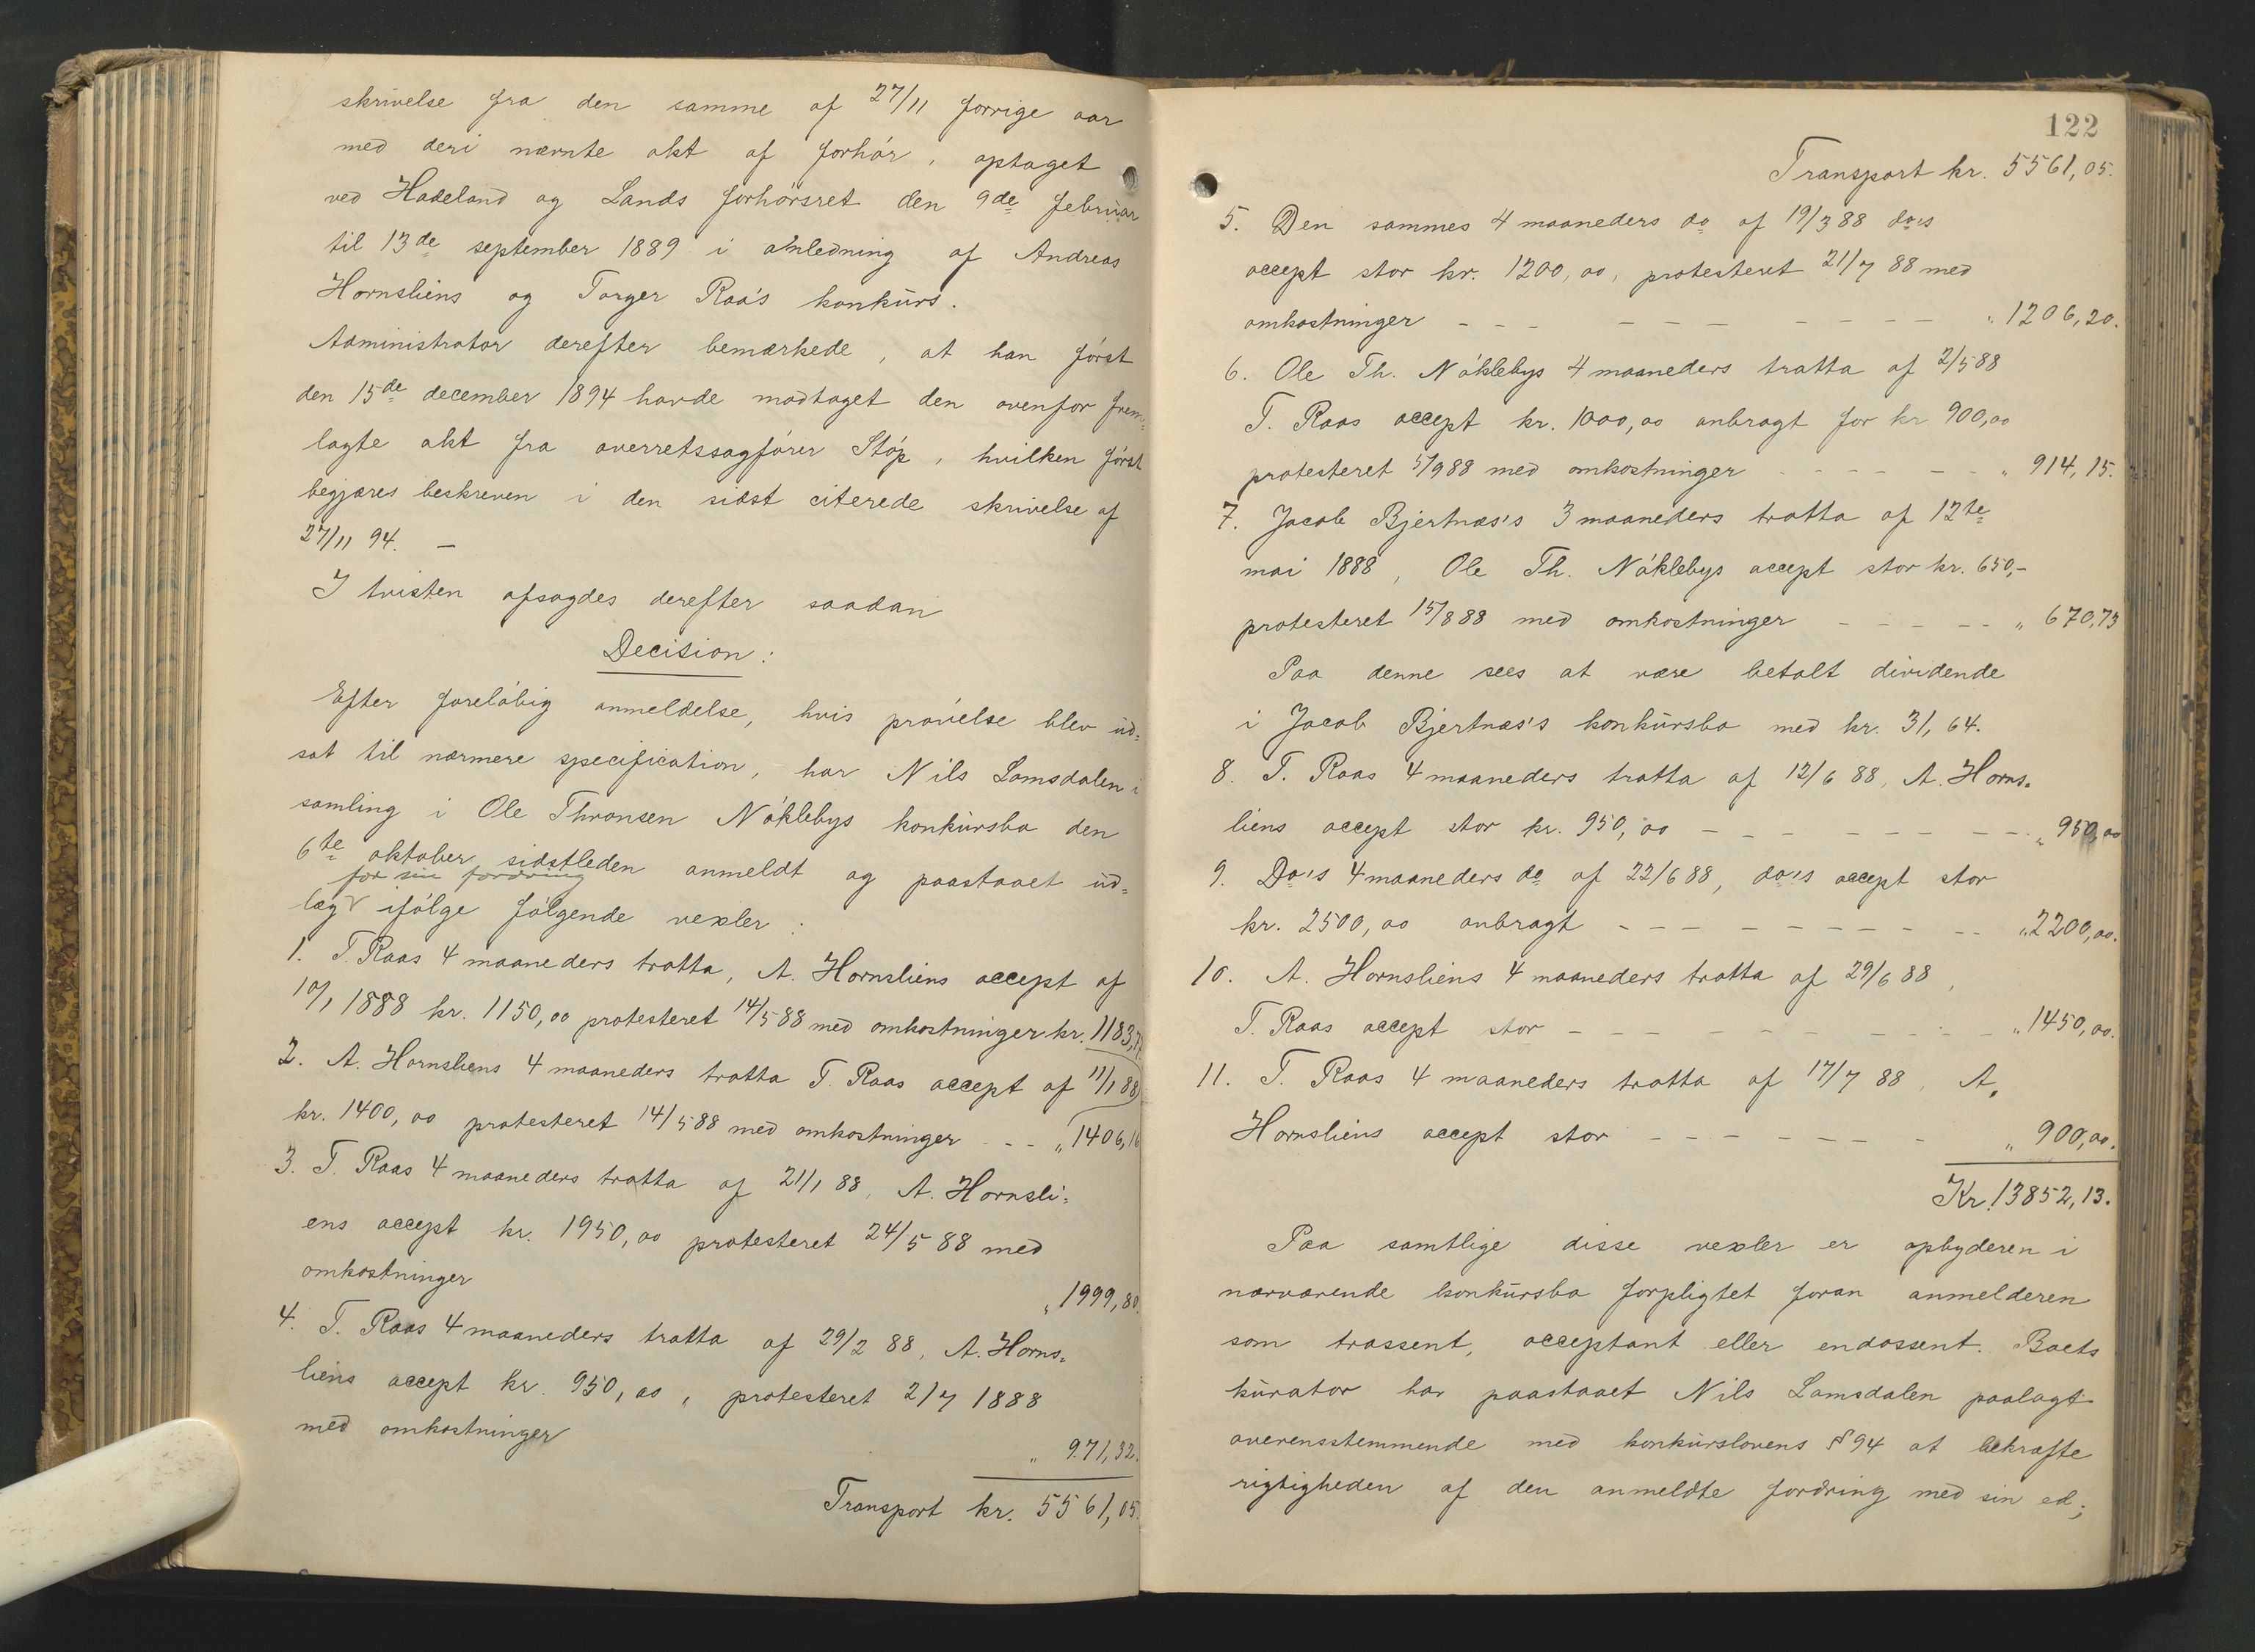 skrivelse fra den samme af 27/11 forrige aar
med deri nævnte akt af forhör, optaget
ved Hadeland og Lands forhörsret den 9de februar
til 13de september 1889 i anledning af Andreas
Hornsliens og Torger Raa's konkurs.
Administrator derefter bemærkede, at han först
den 15de december 1894 havde modtaget den ovenfor frem-
lagte akt fra overretssagförer Stöp, hvilken först
begjæres beskreven i den sidst citerede skrivelse af
27/11 94. –
I tvisten afsagdes derefter saadan
Decision:
Efter forelöbig anmeldelse, hvis prövelse blev ud-
sat til nærmere specification, har Nils Lomsdalen i
samling i Ole Thronsen Nöklebys konkursbo den
6te oktober sidstleden anmeldt og paastaaet ud-
for sin fordring
læg ifölge fölgende vexler:
1. T. Raas 4 maaneders tratta, A. Hornsliens accept af
10/1 1888 kr. 1150,00 protesteret 14/5 88 med omkostninger kr. 1183,77
2. A. Hornsliens 4 maaneders tratta T. Raas accept af 11/1 88
kr. 1400,00 protesteret 14/5 88 med omkostninger - - „ 1406,16
3. T. Raas 4 maaneders tratta af 21/1 88, A. Hornsli-
ens accept kr. 1950,00 protesteret 24/5 88 med
omkostninger „ 1999,80.
4. T. Raas 4 maaneders tratta af 29/2 88, A. Horns-
liens accept kr. 950,00, protesteret 2/7 1888
med omkostninger „ 971,32.
Transport kr. 5561,05.
122
Transport kr. 5561,05.
5. Den sammes 4 maaneders do af 19/3 88 do's
accept stor kr. 1200,00, protesteret 21/7 88 med
omkostninger - - - - - - - - - - „ 1206,20.
6. Ole Th. Nöklebys 4 maaneders tratta af 2/5 88
T. Raas accept kr. 1000,00 anbragt for kr 900,00
protesteret 5/9 88 med omkostninger - - - - - - „ 914,15.
7. Jacob Bjertnæs's 3 maaneders tratta af 12te
mai 1888, Ole Th. Nöklebys accept stor kr. 650,-
protesteret 15/8 88 med omkostninger - - - - - „ 670,73
Paa denne sees at være betalt dividende
i Jacob Bjertnæs's konkursbo med kr. 31,64.
8. T. Raas 4 maaneders tratta af 12/6 88, A. Horns-
liens accept stor kr. 950,00 - - - - - - - - - „ 950,00
9. Do's 4 maaneders do af 22/6 88, do's accept stor
kr. 2500,00 anbragt - - - - - - - - - - „ 2200,00.
10. A. Hornsliens 4 maaneders tratta af 29/6 88,
T. Raas accept stor - - - - - - - - - - „ 1450,00.
11. T. Raas 4 maaneders tratta af 17/7 88, A.
Hornsliens accept stor - - - - - - - - „ 900,00.
Kr. 13852,13.
Paa samtlige disse vexler er opbyderen i
nærværende konkursbo forpligtet foran anmelderen
som trassent, acceptant eller endossent. Boets
kurator har paastaaet Nils Lomsdalen paalagt
overensstemmende med konkurslovens § 94 at bekræfte
rigtigheden af den anmeldte fordring med sin ed;